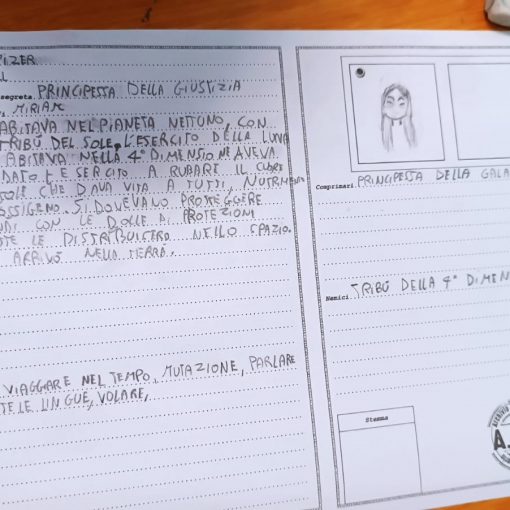 PIZER
segreta. PRINCIPESSA DELLA GIUSTIZIA
MIRIAM
ABITAVA NEL PIANETA NETTUNO, CON
TRIBÚ DEL SOLE, L'ESERCITO DELLA LUNA
ABITAVA NELLA 4ª DIMENSIONE AVEVA
DATO L ESERCITO A RUBARE IL CUORE
SOLE CHE DAVA VITA A TUTTI, NUTRIMENTO
OSSIGENO. SI DOVEVANO PROTEGGERE
CON LE BOLLE DI PROTEZIONI
LE DISTRIBUIRONO NELLO SPAZIO.
ARRIVÒ NELLA TERRA.
VIAGGIARE NEL TEMPO, MUTAZIONE, PARLARE
TE LE LINGUE, VOLARE,
Comprimari PRINCIPESSA DELLA GALA
Nemici TRIBÚ DELLA 4ª DIMEN
Stemma
A.